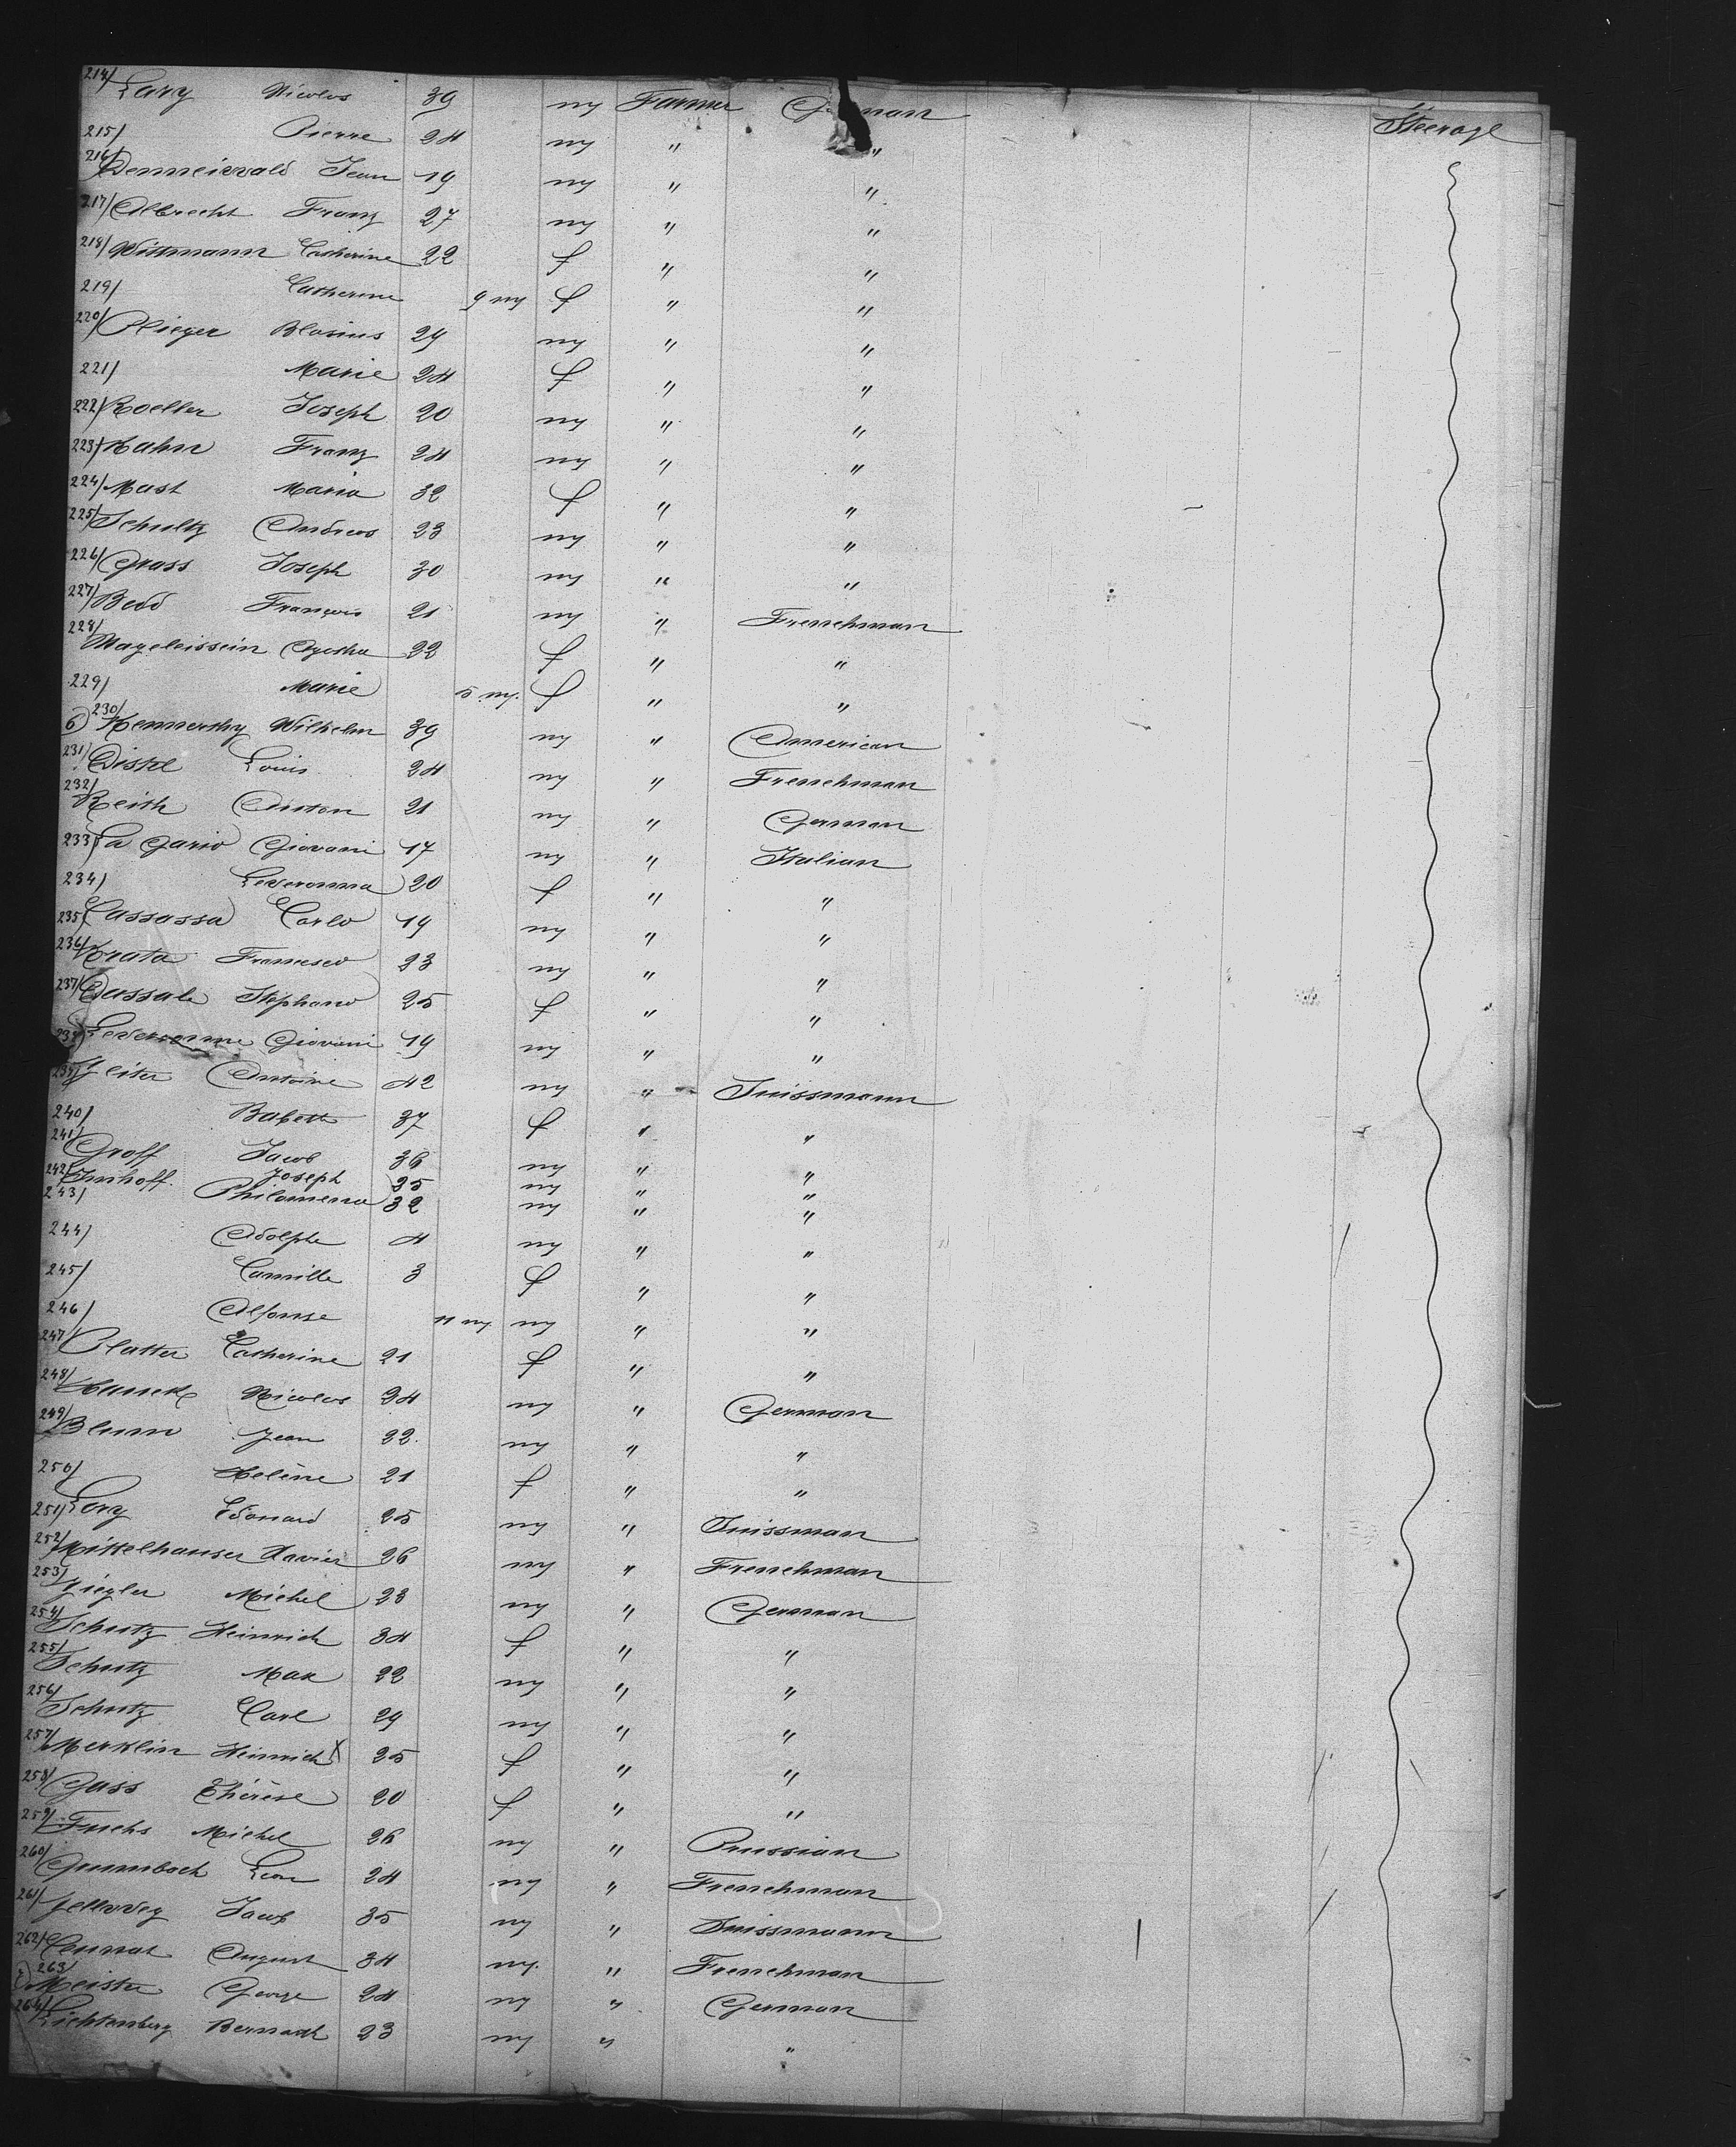 214/ Lary Nicolas 39 m Farmer German Steerage
215/ Pierre 24 m " "
216/ Denneiwald Jean 19 m " "
217/ Albrecht Franz 27 m " "
218/ Wittmann Catherine 22 f " "
219/ Catherine 9 m f " "
220/ Plieger Blasius 29 m " "
221/ Marie 24 f " "
222/ Roeller Joseph 20 m " "
223/ Hahn Franz 24 m " "
224/ Mast Maria 32 f " "
225/ Schultz Andreas 23 m " "
226/ Grass Joseph 30 m " "
227/ Bedo François 21 m " Frenchman
228/ Mageleissein Agatha 22 f " "
229/ Marie 5 m. f " "
6) 230/ Kennerthy Wilhelm 39 m " American
231/ Distel Louis 24 m " Frenchman
232/ Reith Anton 21 m " German
233/ La Gario Giovani 17 m " Italian
234/ Leveronna 20 f " "
235/ Cassassa Carlo 19 m " "
236/ Krata Francisco 23 m " "
237/ Dassale Stephano 25 f " "
238/ Leveronne Giovani 19 m " "
239/ Zeiter Antoine 42 m " Suissmann
240/ Babette 37 f " "
241/ Groff Jacob 36 m " "
242/ Imhoff. Joseph 35 m " "
243/ Philomena 32 m " "
244/ Adolphe 4 m " "
245/ Camille 3 f " "
246/ Alfonse 11 m m " "
247/ Platter Catherine 21 f " "
248/ Nicolas 34 m " German
249/ Blum Jean 22. m " "
250/ Helène 21 f " "
251/ Lory Edouard 25 m " Suissman
252/ Mittelhauser Xavier 26 m " Frenchman
253/ Ziegler Michel 23 m " German
254/ Schutz Heinrich 34 f " "
255/ Schutz Max 22 m " "
256/ Schutz Carl 29 m " "
257/ Merklin Heinrich X 25 f " "
258/ Gass Thérèse 20 f " "
259/ Fuchs Michel 26 m " Prussian
260/ Grumbach Leon 24 m " Frenchman
261/ Jellweg Jacob 35 m " Suissmann
262/ Cennat August 34 m. " Frenchman
263/ Meister George 24 m " German
264/ Lichtenberg Bernard 23 m " "